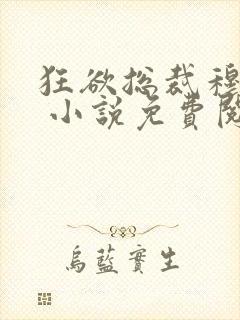 狂欲总裁穆
小說免費閱
烏藍實生